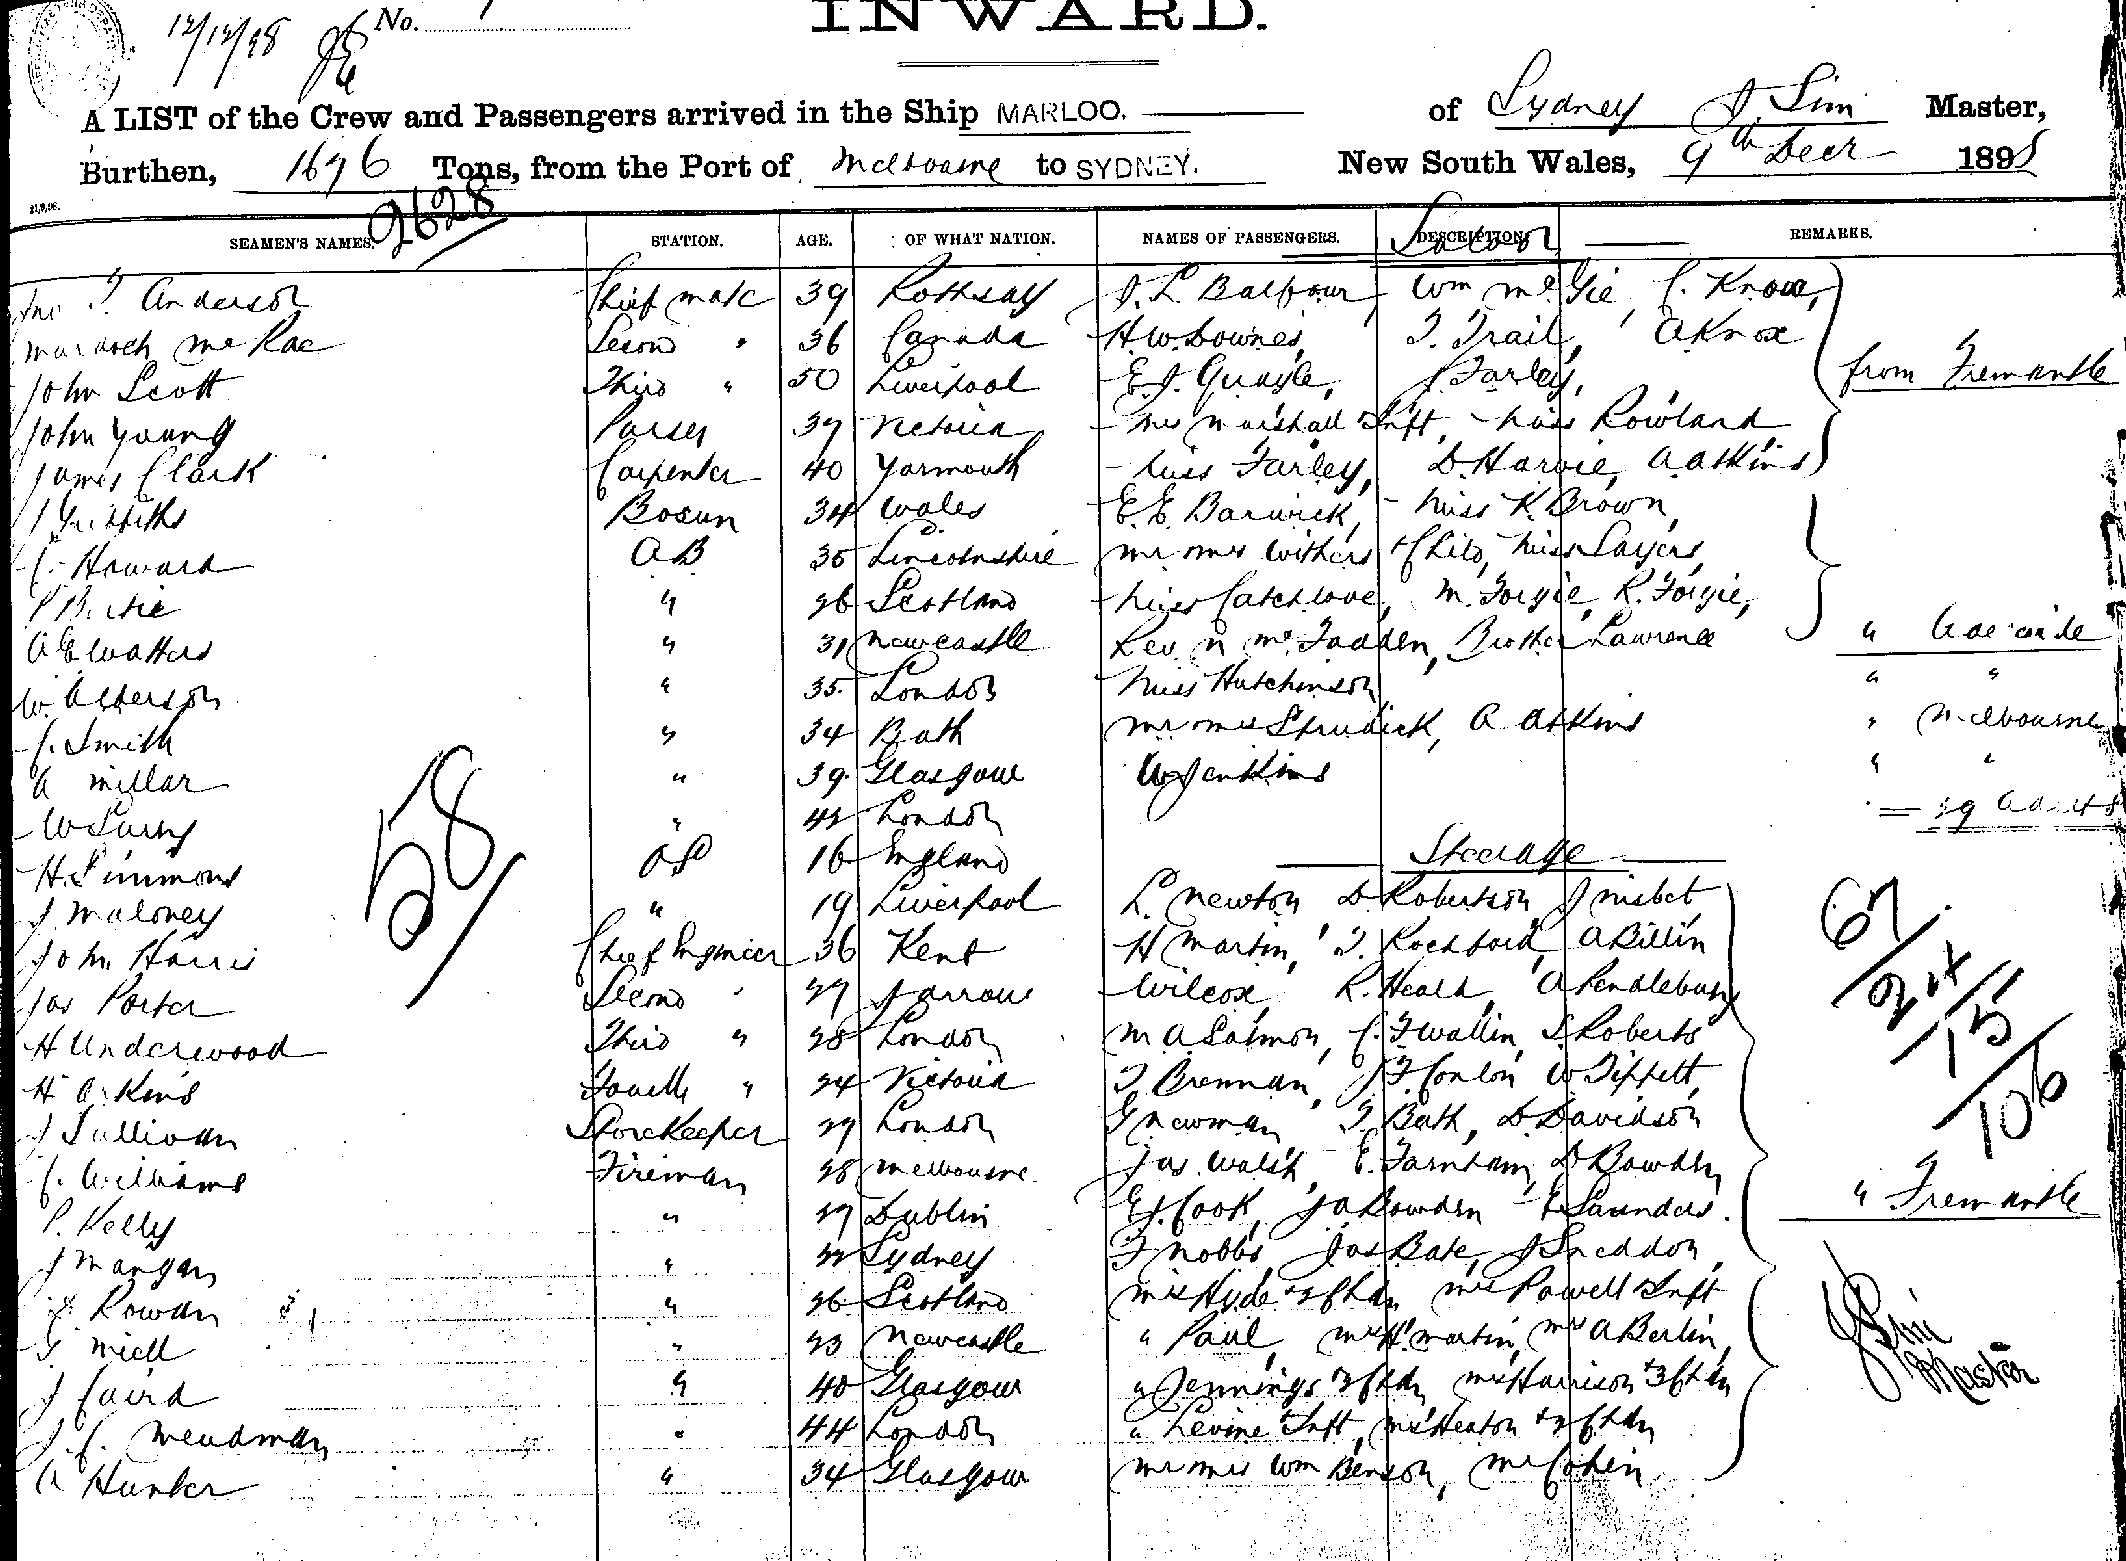 12/12/98 No.
INWARD.
A LIST of the Crew and Passengers arrived in the Ship MARLOO. of Sydney J Sim Master,
Burthen, 1696 Tons, from the Port of Melbourne to SYDNEY. New South Wales, 9th Decr 1898
2628
SEAMEN'S NAMES. STATION. AGE. OF WHAT NATION. NAMES OF PASSENGERS. DESCRIPTION. REMARKS.
Saloon
Jno T. Anderson Chief mate 39 Rothsay J. L. Balfour, Wm McGie, C. Knox,
Murdoch McRae Second " 36 Canada H.W. Downes, T. Trail, A Knox
John Scott Third " 50 Liverpool E.J. Quayle, J Farley, from Fremantle
John Young Purser 37 Victoria Mrs Marshall & Inft, Miss Rowland
James Clark Carpenter 40 Yarmouth Miss Farley, D. Harvie, A Atkins
J Griffiths Bosun 34 Wales E.E. Barwick, Miss K. Brown,
C. Howard AB 35 Lincolnshire Mr & Mrs Withers & Child, Miss Sayers,
" 26 Scotland Miss Catchlove, M. Forgie, R. Forgie,
A E Watters " 31 Newcastle Rev N McFadden, Brother Lawrence " Adelaide
W. " 35 London Miss Hutchinson " "
C. Smith " 34 Bath Mr & Mrs Strudick, A Atkins " Melbourne
A Millar " 39 Glasgow W Jenkins " "
W " 42 London = 29 Adults
H. Simmons OS 16 England Steerage
J Maloney " 19 Liverpool L. Newton D Robertson, J Nisbet
John Harris Chief Engineer 36 Kent H Martin, T. Rochford, A Billin
Jas Porter Second " 27 Jarrow Wilcox, R. Heald, A Pendlebury
H Underwood Third " 28 London M A Salmon, C. F Wallin, S Roberts
H Atkins Fourth " 24 Victoria T. Brennan, J F. Conlon W Tippett,
J Sullivan Storekeeper 27 London G Newman T. Bath, D. Davidson
C. Williams Fireman 28 Melbourne Jas Walsh, E. Farnham, D Bowden
P. Kelly " 27 Dublin E J. Cook, J A Bowden E Saunders. " Fremantle
J Mangan " 22 Sydney F Nobbs, Jas Bate, J Sneddon,
J. Rowan " 26 Scotland Mrs Hyde & 2 Chdn Mrs Powell & Inft
" 23 Newcastle " Paul, Mrs H. Martin, Mrs A Berlin,
J Caird " 40 Glasgow " Jennings 2 Chdn Mrs Harrison & 3 Chdn
J. C. Meadman " 44 London " Levine & Inft, Mrs Heaton & 2 Chdn
A Hunter " 34 Glasgow Mr & Mrs Wm Benson, Mr Cohen
58
67
24
15
106
J Sim
Master